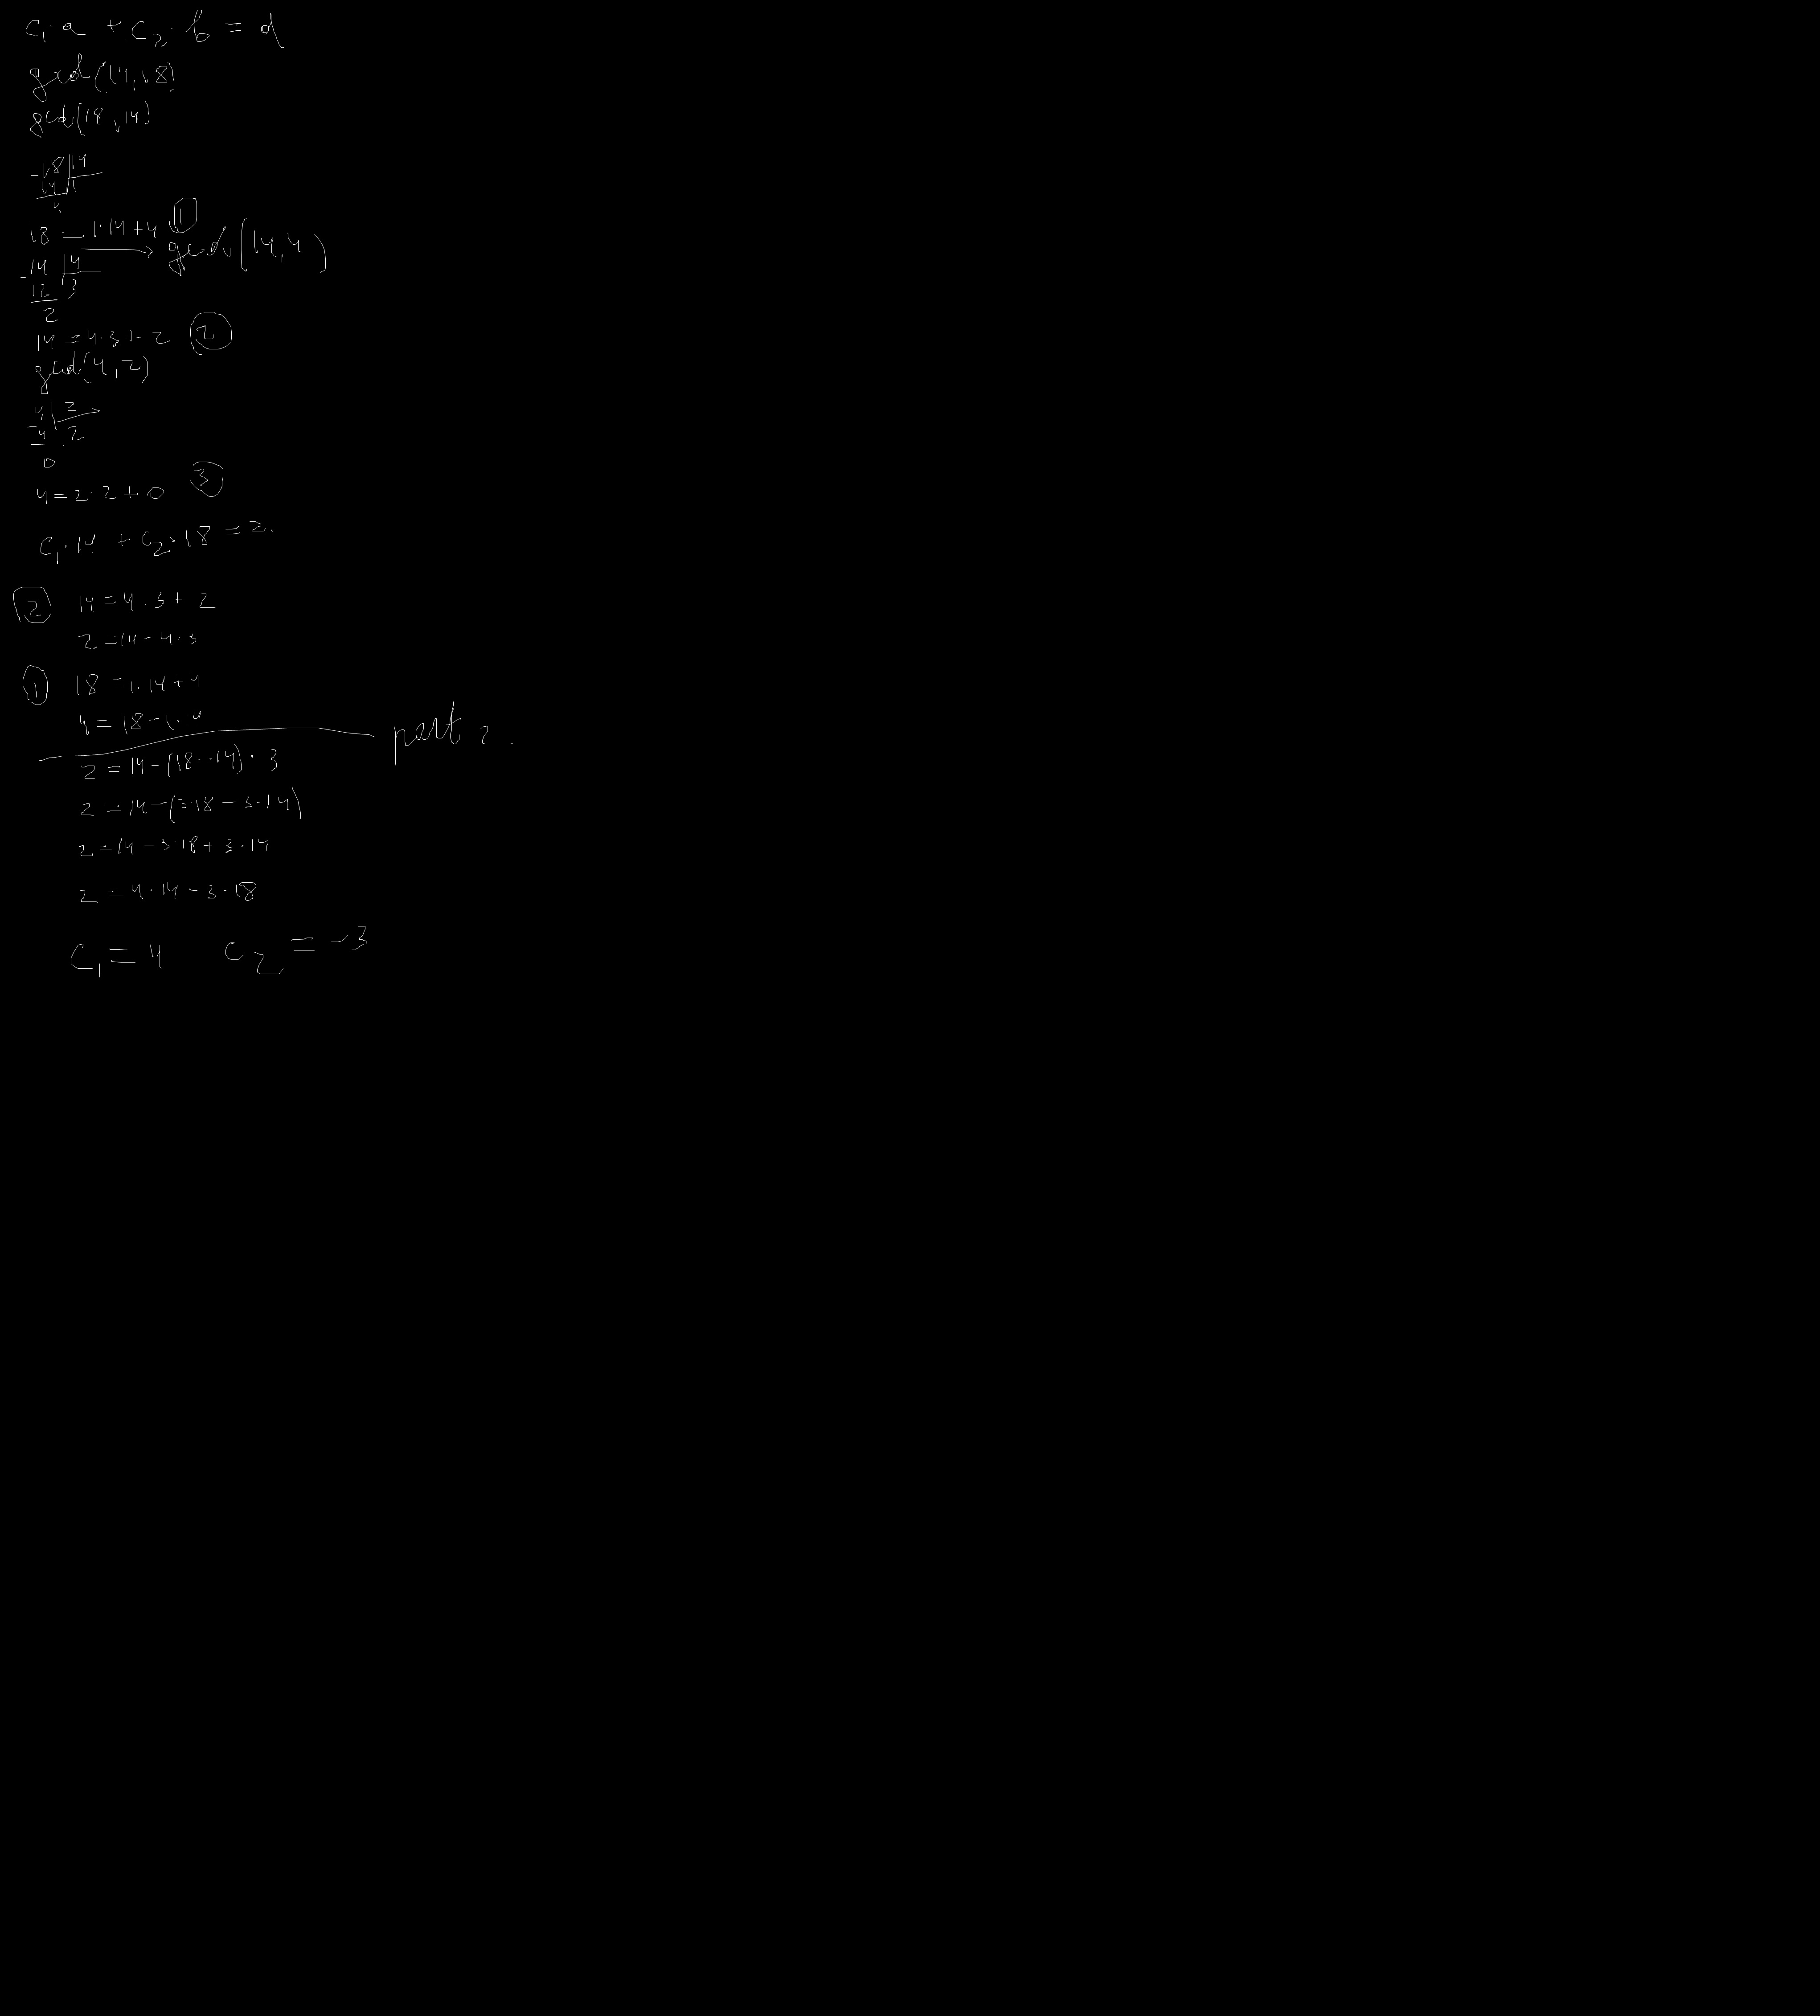 c₁·a + c₂·b = d
gcd(14,18)
gcd(18,14)
-18|14
14 1
4
18 = 1·14+4 ①
→ gcd(14,4)
-14|4
12 3
2
14=4·3+2 ②
gcd(4,2)
4|2
-4 2
0
4=2·2+0 ③
c₁·14 + c₂·18 = 2.
② 14=4·3+2
2=14-4·3
① 18=1·14+4
4=18-1·14
part 2
2=14-(18-14)·3
2=14-(3·18-3·14)
2=14-3·18+3·14
2=4·14-3·18
c₁=4 c₂=-3